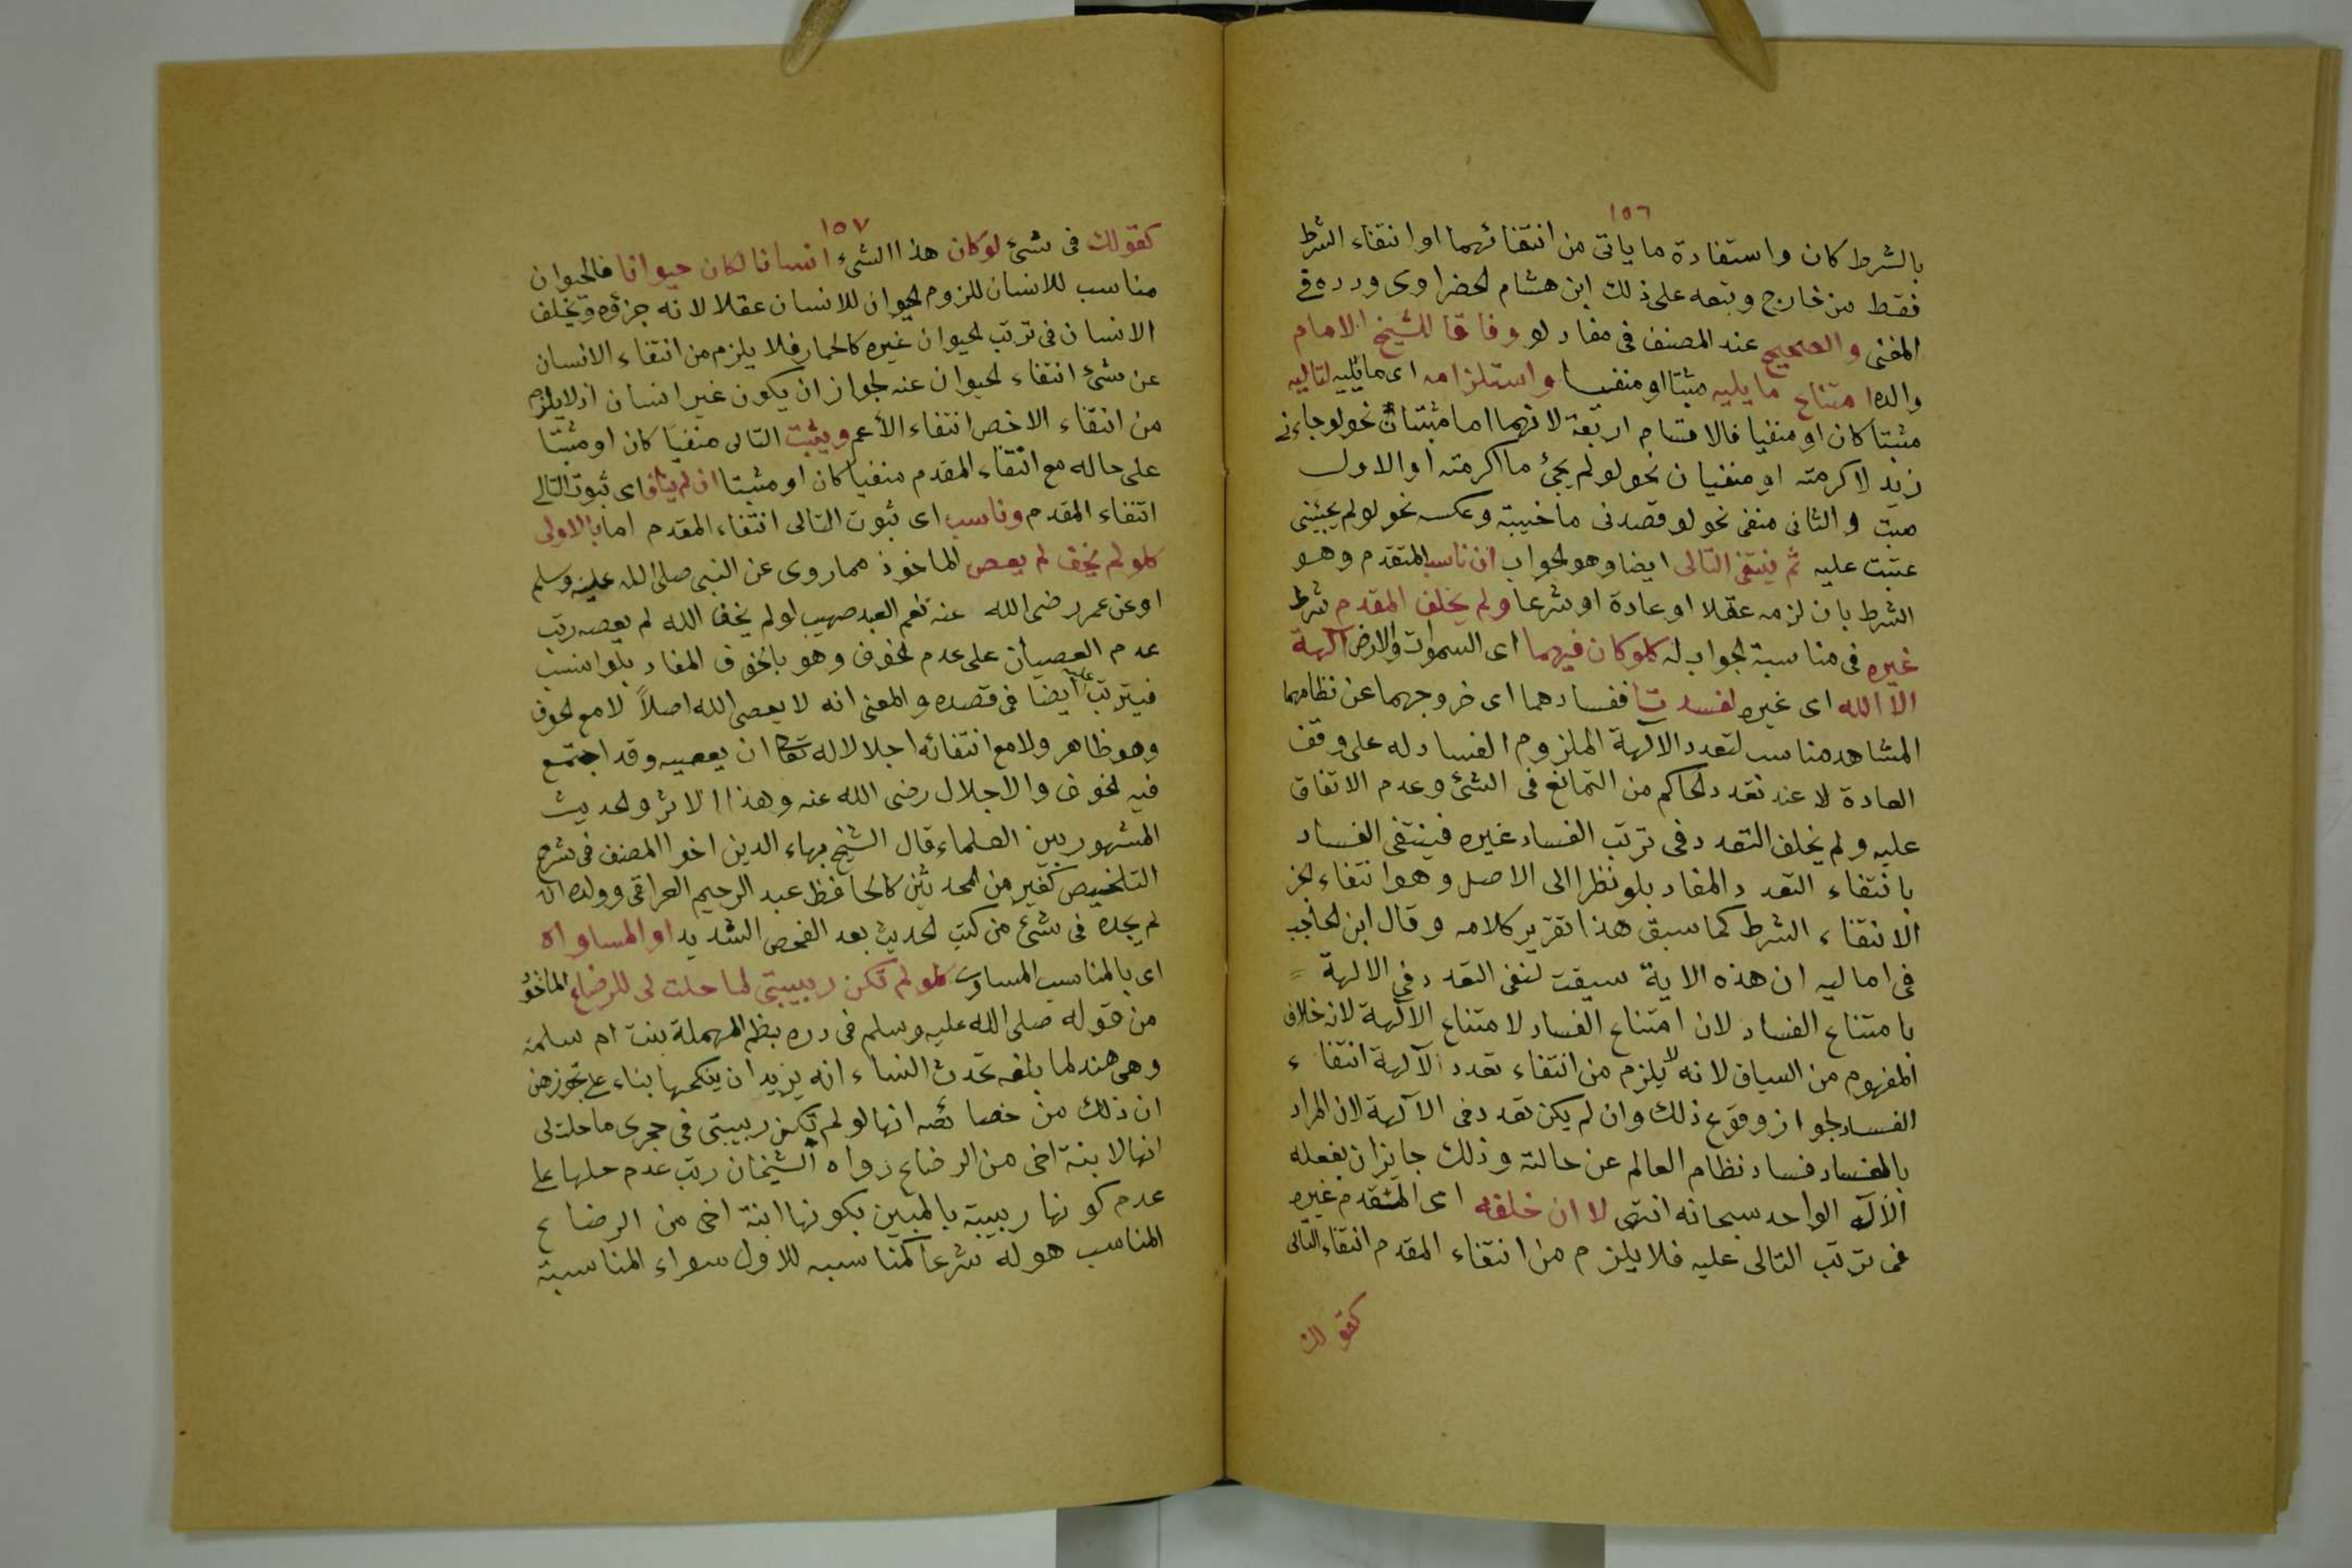 ١٥٦
بالشرط كان واستفادة ما ياتى من انتفائهما او انتفاء الشرط
فقط من خارج وتبعه على ذلك ابن هشام الخضراوى ورده فى
المغنى والصحيح عند المصنف فى مفاد لو وفاقا للشيخ الامام
والده امتناع ما يليه مثبتا او منفيا واستلزامه اى ما يليه لتاليه
مثبتا كان او منفيا فالاقسام اربعة لانهما اما مثبتان نحو لو جاءنى
زيد لاكرمته او منفيان نحو لو لم يجئ ما اكرمته او الاول
مبت والثانى منفى نحو لو قصدنى ما خيبته وعكسه نحو لو لم يجئنى
عتبت عليه ثم ينتفى التالى ايضا وهو لجواب ان ناسب المتقدم وهو
الشرط بان لزمه عقلا او عادة او شرعا ولم يخلف المقدم شرط
غيره فى مناسبة لجواب له كلو كان فيهما اى السموات والارض آلهة
الا الله اى غيره لفسدتا ففسادهما اى خروجهما عن نظامهما
المشاهد مناسب لتعدد الالهة الملزوم الفساد له على وفق
العادة لا عند تعدد لحاكم من التمانع فى الشئ وعدم الاتفاق
عليه ولم يخلف التعدد فى ترتب الفساد غيره فينتفى الفساد
بانتفاء التعدد المفاد بلو نظرا الى الاصل وهو انتفاء لجز
الانتفاء الشرط كما سبق هذا تقرير كلامه وقال ابن لحاجب
فى اماليه ان هذه الاية سيقت لنفى التعدد فى الالهة =
بامتناع الفساد لان امتناع الفساد لامتناع الالهة لانه خلاف
المفهوم من السياق لانه لا يلزم من انتفاء تعدد الآلهة انتفاء
الفساد لجواز وقوع ذلك وان لم يكن تعدد فى الآلهة لان المراد
بالفساد فساد نظام العالم عن حالته وذلك جايز ان يفعله
الآله الواحد سبحانه انتهى لا ان خلفه اى المتقدم غيره
فى ترتب التالى عليه فلا يلزم من انتفاء المقدم انتفاء التالى
كقولك
١٥٧
كقولك فى شئ لو كان هذا الشىء انسانا لكان حيوانا فالحيوان
مناسب للانسان للزوم لحيوان للانسان عقلا لانه جزؤه ويخلف
الانسان فى ترتب لحيوان غيره كالحمار فلا يلزم من انتفاء الانسان
عن شئ انتفاء لحيوان عنه لجواز ان يكون غير انسان اذ لا يلزم
من انتفاء الاخص انتفاء الأعم ويثبت التالى منفيا كان او مثبتا
على حاله مع انتفاء المقدم منفيا كان او مثبتا ان لم يناف اى ثبوت التالى
انتفاء المقدم وناسب اى ثبوت التالى انتفاء المقدم اما بالاولى
كلو لم يخف لم يعص الماخوذ مما روى عن النبى صلى الله عليه وسلم
او عن عمر رضى الله عنه نعم العبد صهيب لو لم يخف الله لم يعصه رتب
عدم العصيان على عدم لخوف وهو بالخوف المفاد بلو انسب
فيترتب عليه ايضا فى قصده والمعنى انه لا يعصى الله اصلاً لا مع لخوف
وهو ظاهر ولا مع انتفائه اجلالا له تعا ان يعصيه وقد اجتمع
فيه لخوف والاجلال رضى الله عنه وهذا الاثر ولحديث
المشهور بين العلماء قال الشيخ بهاء الدين اخو المصنف فى شرح
التلخيص كغير من المحدثين كالحافظ عبد الرحيم العراقى وولده انه
لم يجده فى شئ من كتب لحديث بعد الفحص الشديد او المساواه
اى بالمناسب المساوى كلو لم تكن ربيبتى لما حلت لى للرضاع الماخوذ
من قوله صلى الله عليه وسلم فى دره بظم المهملة بنت ام سلمة
وهى هند لما بلغه تحدث النساء انه يريد ان ينكحها بناء على تجوزهن
ان ذلك من خصائصه انها لو لم تكن ربيبتى فى حجرى ما حلت لى
انها لابنة اخى من الرضاع رواه الشيخان رتب عدم حلها على
عدم كونها ربيبة بالمبين بكونها ابنة اخى من الرضاع
المناسب هو له شرعا كمناسبه للاول سواء المناسبة